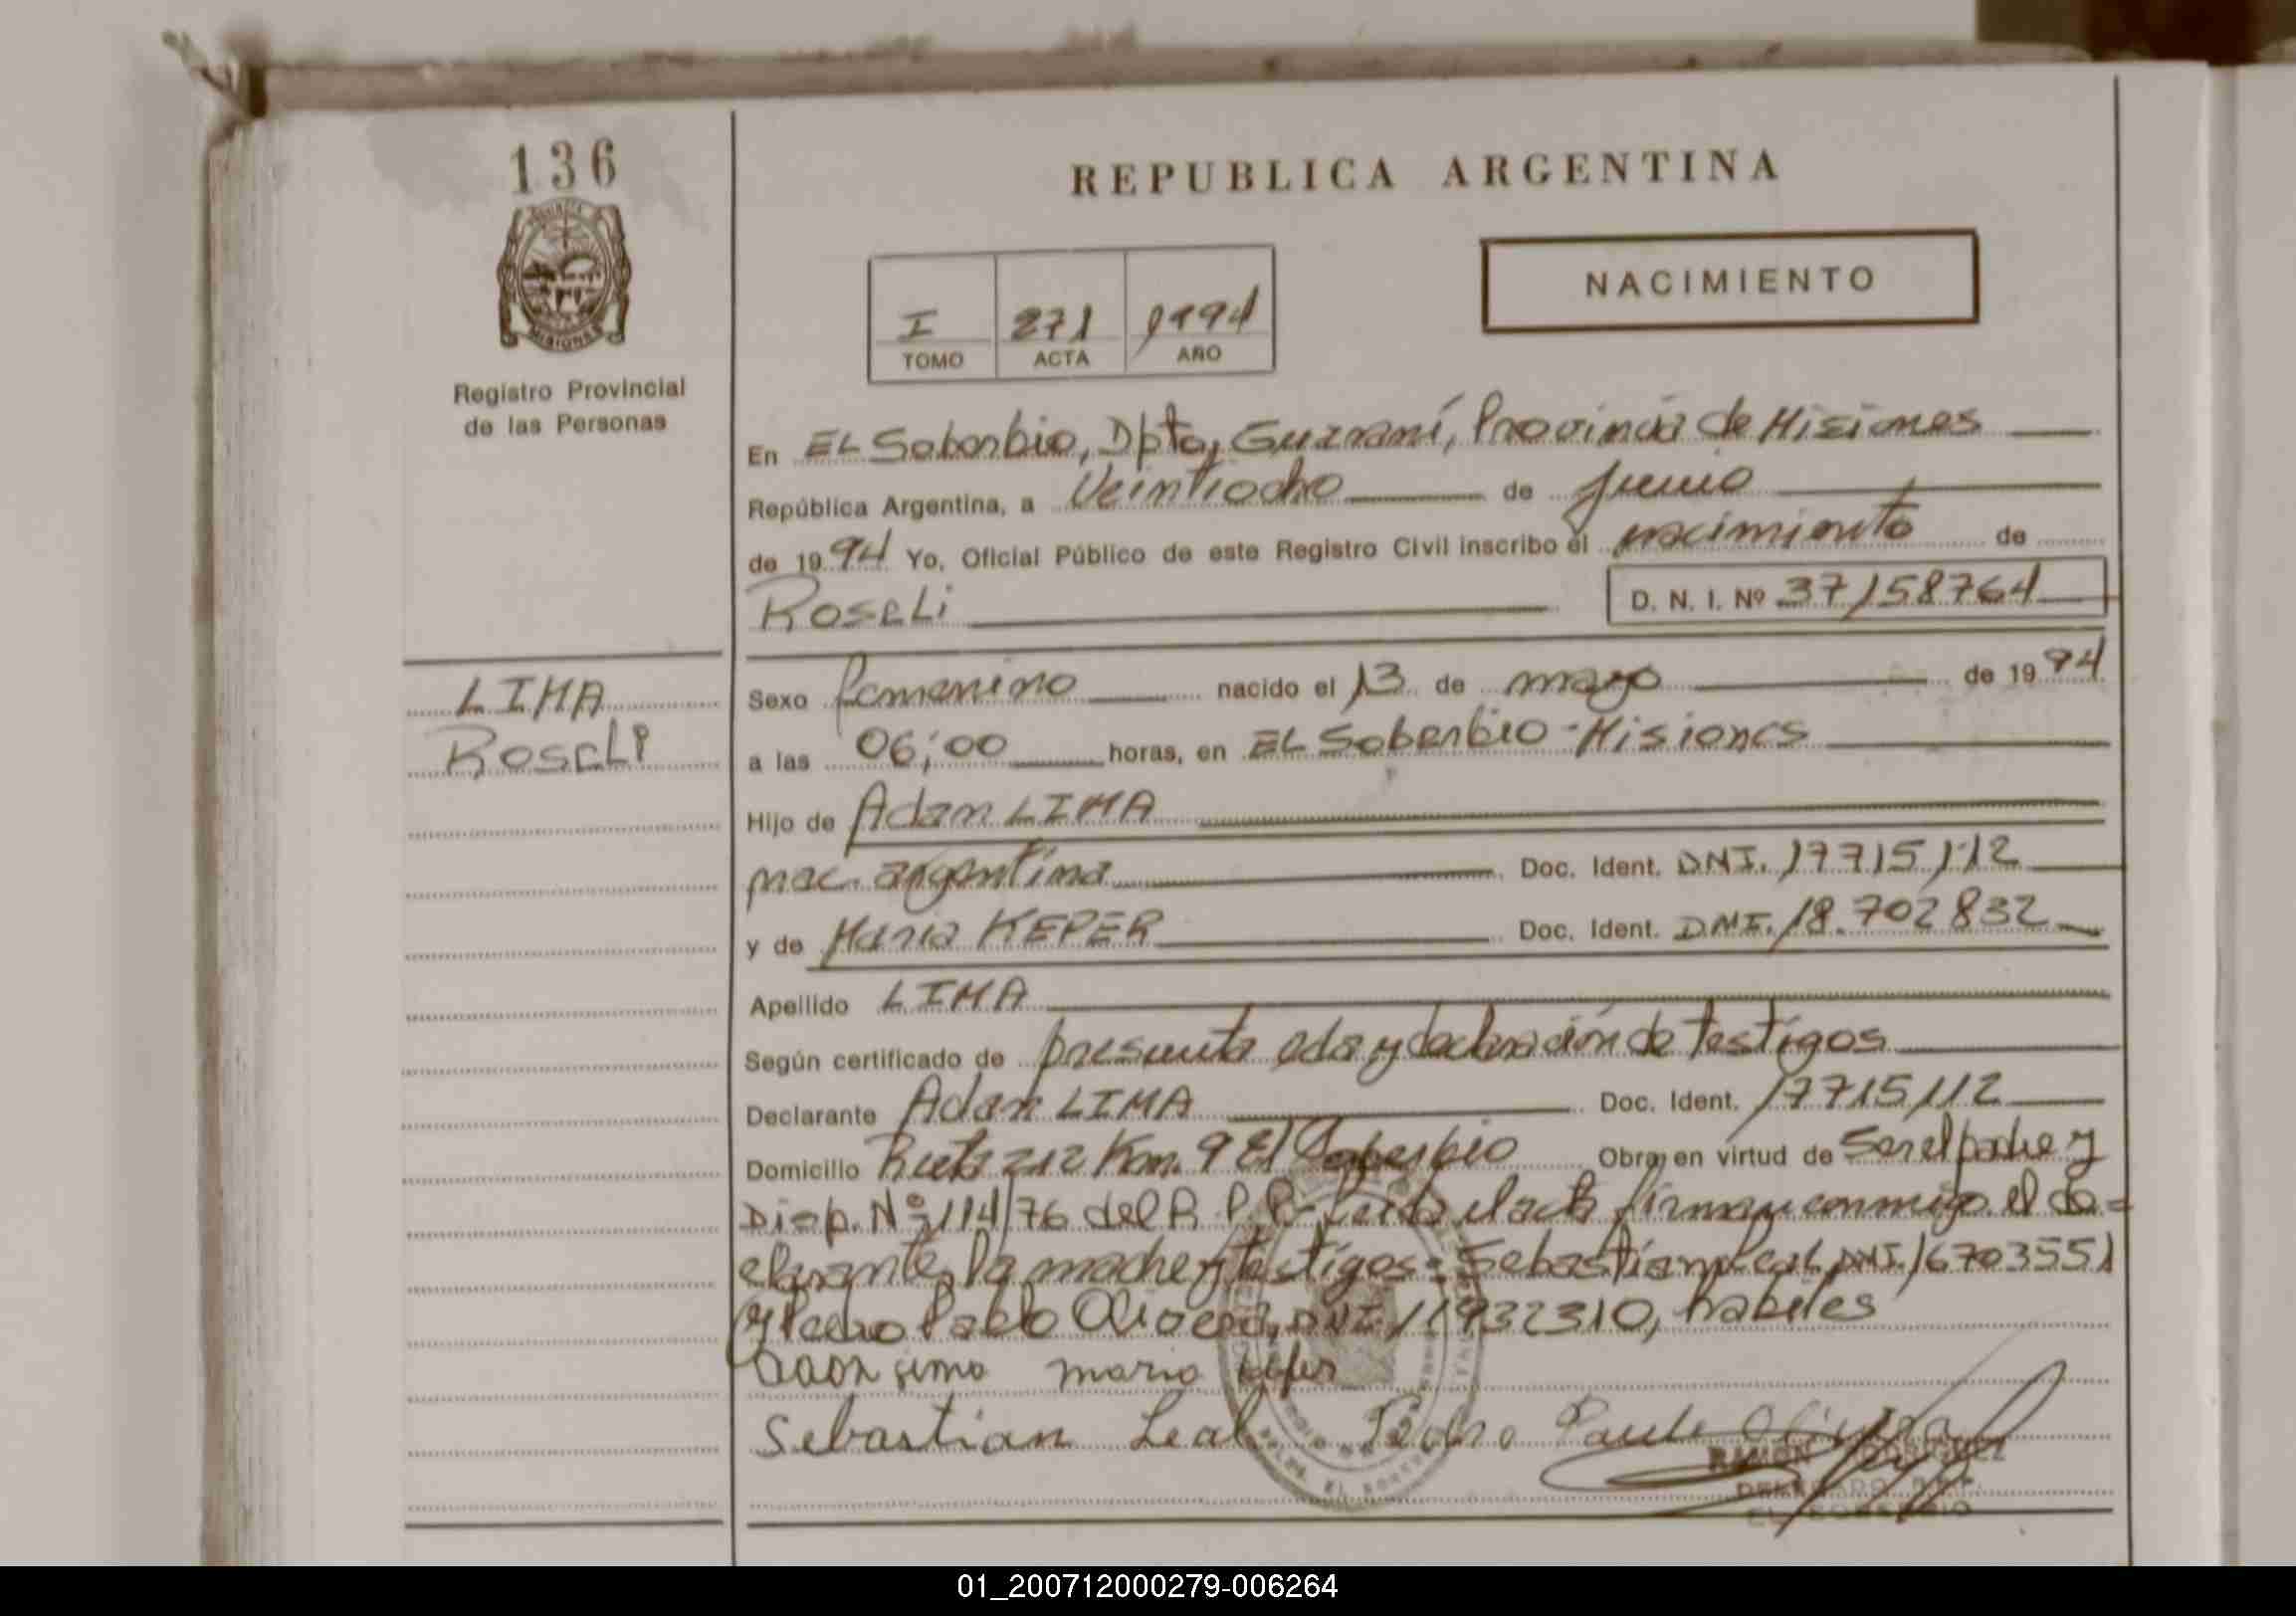 136
REPUBLICA ARGENTINA
NACIMIENTO
I 271 1994
TOMO ACTA AÑO
Registro Provincial
de las Personas
En EL Soberbio, Dpto, Guaraní, Provincia de Misiones
República Argentina, a Veintiocho de junio
de 1994 Yo, Oficial Público de este Registro Civil inscribo el nacimiento de
Roseli D. N. I. Nº 37158764
LIMA
Roseli
Sexo femenino nacido el 13 de mayo de 1994
a las 06:00 horas, en EL Soberbio - Misiones
Hijo de Adam LIMA
nac. argentina Doc. Ident. DNI. 17715112
y de Maria KEPER Doc. Ident. DNI. 18.702832
Apellido LIMA
Según certificado de presunta eda y declaración de testigos
Declarante Adam LIMA Doc. Ident. 17715112
Domicilio Ruta 212 Km. 9 El Soberbio Obra en virtud de Ser el padre y
Disp. Nº 114/76 del R. P. P. Leida el acta firman conmigo el de=
clarante, la madre y testigos: Sebastian Leal DNI. 16703551
y Pedro Pablo Olivera, DNI 11932310, habiles
maria
Sebastian Leal Pedro
RAMON RODRIGUEZ
DELEGADO R.P.P.
EL SOBERBIO
01_200712000279-006264